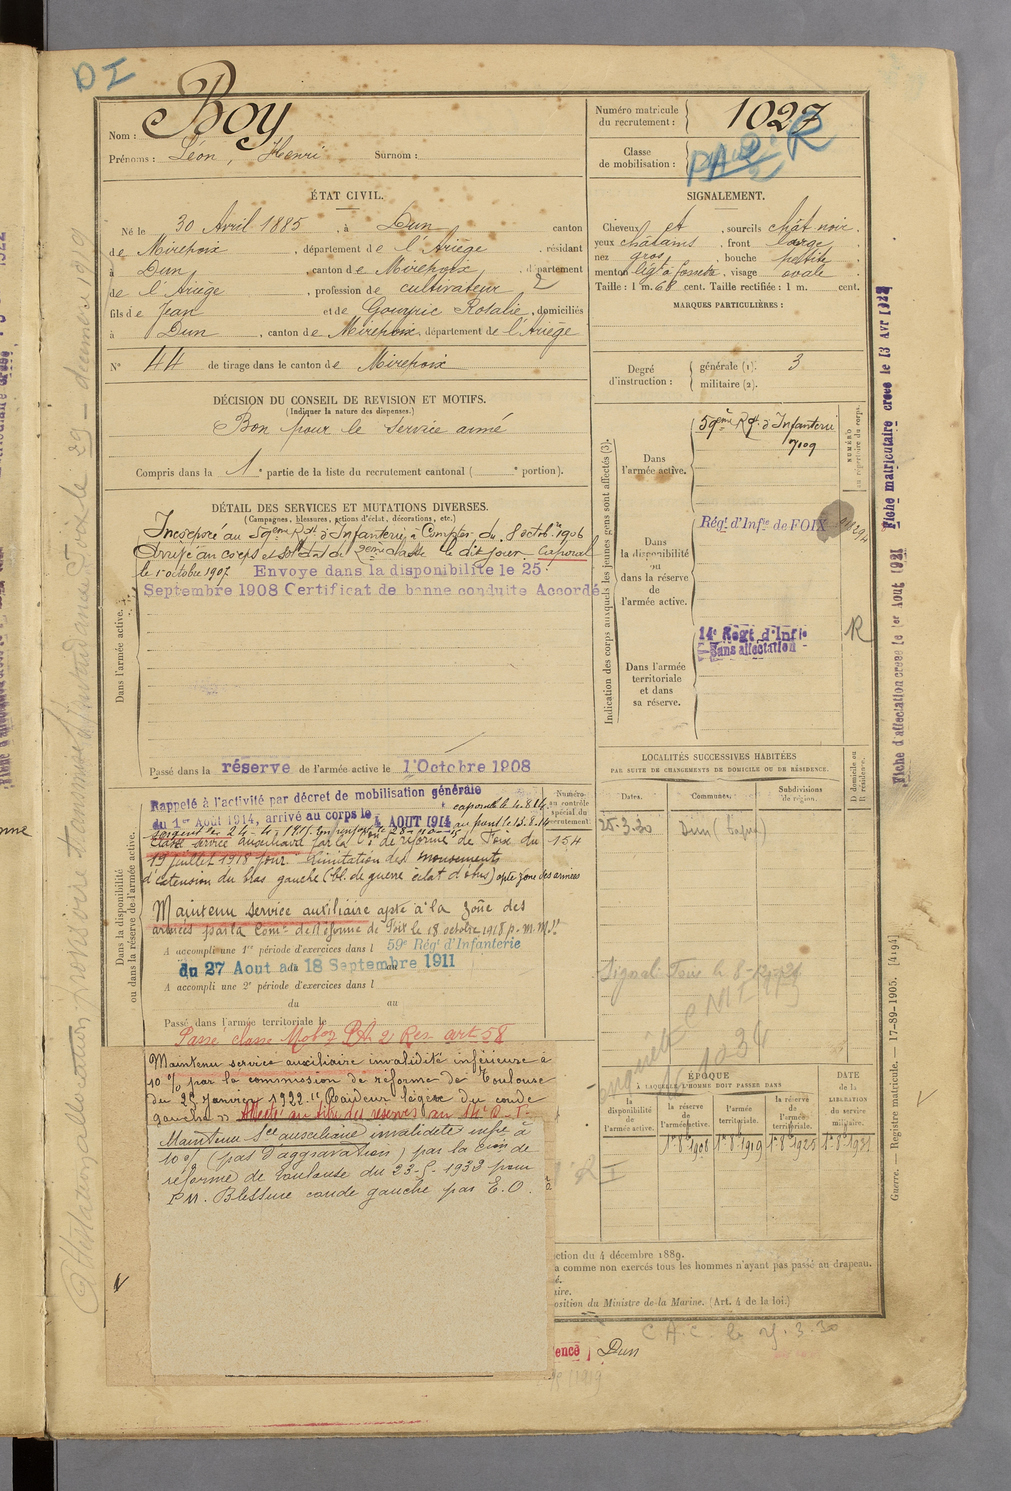 DI
Nom : Boy
Prénoms : Léon, Henri Surnom :
Numéro matricule du recrutement : 1027
Classe de mobilisation :
R
ÉTAT CIVIL.
Né le 30 Avril 1885, à Dun canton
de Mirepoix, département de l'Ariège, résidant
à Dun, canton de Mirepoix, département
de l'Ariège, profession de cultivateur
2
fils de Jean et de Gouzric Rosalie, domiciliés
à Dun, canton de Mirepoix, département de l'Ariège
N° 44 de tirage dans le canton de Mirepoix
SIGNALEMENT.
Cheveux et , sourcils chât noir.
yeux châtains , front large,
nez gros , bouche petite,
menton , visage ovale.
Taille : 1 m. 68 cent. Taille rectifiée : 1 m. cent.
MARQUES PARTICULIÈRES :
Degré d'instruction : générale (1). 3
militaire (2).
DÉCISION DU CONSEIL DE REVISION ET MOTIFS.
(Indiquer la nature des dispenses.)
Bon pour le service armé
Compris dans la 1e partie de la liste du recrutement cantonal ( e portion).
DÉTAIL DES SERVICES ET MUTATIONS DIVERSES.
(Campagnes, blessures, actions d'éclat, décorations, etc.)
Dans l'armée active.
Incorporé au 59ème Rgt d'Infanterie à Compter du 8 octobre 1906
Arrivé au corps et soldat de 2ème classe le dit jour. Caporal
le 1er octobre 1907. Envoye dans la disponibilite le 25
Septembre 1908 Certificat de bonne conduite Accordé
Passé dans la réserve de l'armée active le 1 Octobre 1908
Indication des corps auxquels les jeunes gens sont affectés (3).
NUMÉRO au répertoire du corps.
Dans l'armée active.
59ème Rgt d'Infanterie
7009
Dans la disponibilité ou dans la réserve de l'armée active.
Régt d'Infie de FOIX
Dans l'armée territoriale et dans sa réserve.
14e Régt d'Infie
Sans affectation
R
Dans la disponibilité ou dans la réserve de l'armée active.
Rappelé à l'activité par décret de mobilisation générale
du 1er Août 1914, arrivé au corps le 4 AOUT 1914
caporal le 4.8.14
Classé service auxiliaire par la Con de réforme de Foix du
19 juillet 1918 pour limitation des mouvements
d'extension du bras gauche (bl. de guerre éclat d'obus) apte zone des armées
Maintenu service auxiliaire apte à la zone des
armées par la Comon de Réforme de Foix le 18 octobre 1918 p. m. m.
A accompli une 1re période d'exercices dans l 59e Régt d'Infanterie
du 27 Aout au 18 Septembre 1911
A accompli une 2e période d'exercices dans l
du au
Passé dans l'armée territoriale le
Passé classe Mobon 2 Res art 58
Maintenu service auxiliaire invalidité inférieure à
10 % par la commission de réforme de Toulouse
du 25 Janvier 1922. "Raideur légère du coude
gauche" Affecté au titre des réserves au 14e R.I.
Maintenu Sce auxiliaire invalidité infre à
10 % (pas d'aggravation) par la cion de
réforme de Toulouse du 23-5-1933 pour
PM. Blessure coude gauche par E.O.
Numéro au contrôle spécial du recrutement.
154
LOCALITÉS SUCCESSIVES HABITÉES
PAR SUITE DE CHANGEMENTS DE DOMICILE OU DE RÉSIDENCE.
Dates. Communes. Subdivisions de région. D domicile ou R résidence.
25-3-30 Dun
ÉPOQUE
À LAQUELLE L'HOMME DOIT PASSER DANS
DATE de la LIBÉRATION du service militaire.
la disponibilité de l'armée active.
la réserve de l'armée active.
l'armée territoriale.
la réserve de l'armée territoriale.
1er 8bre 1908 1er 8bre 1919 1er 8bre 1925 1er 8bre 1931
ction du 4 décembre 1889.
a comme non exercés tous les hommes n'ayant pas passé au drapeau.
osition du Ministre de la Marine. (Art. 4 de la loi.)
C.A.C. le 25.3.30
ence Dun
Guerre. — Registre matricule. — 17-89-1905. [4194]
Fiche matriculaire créée le 13 Avr
Fiche d'affectation créée le 1er Aout 1921